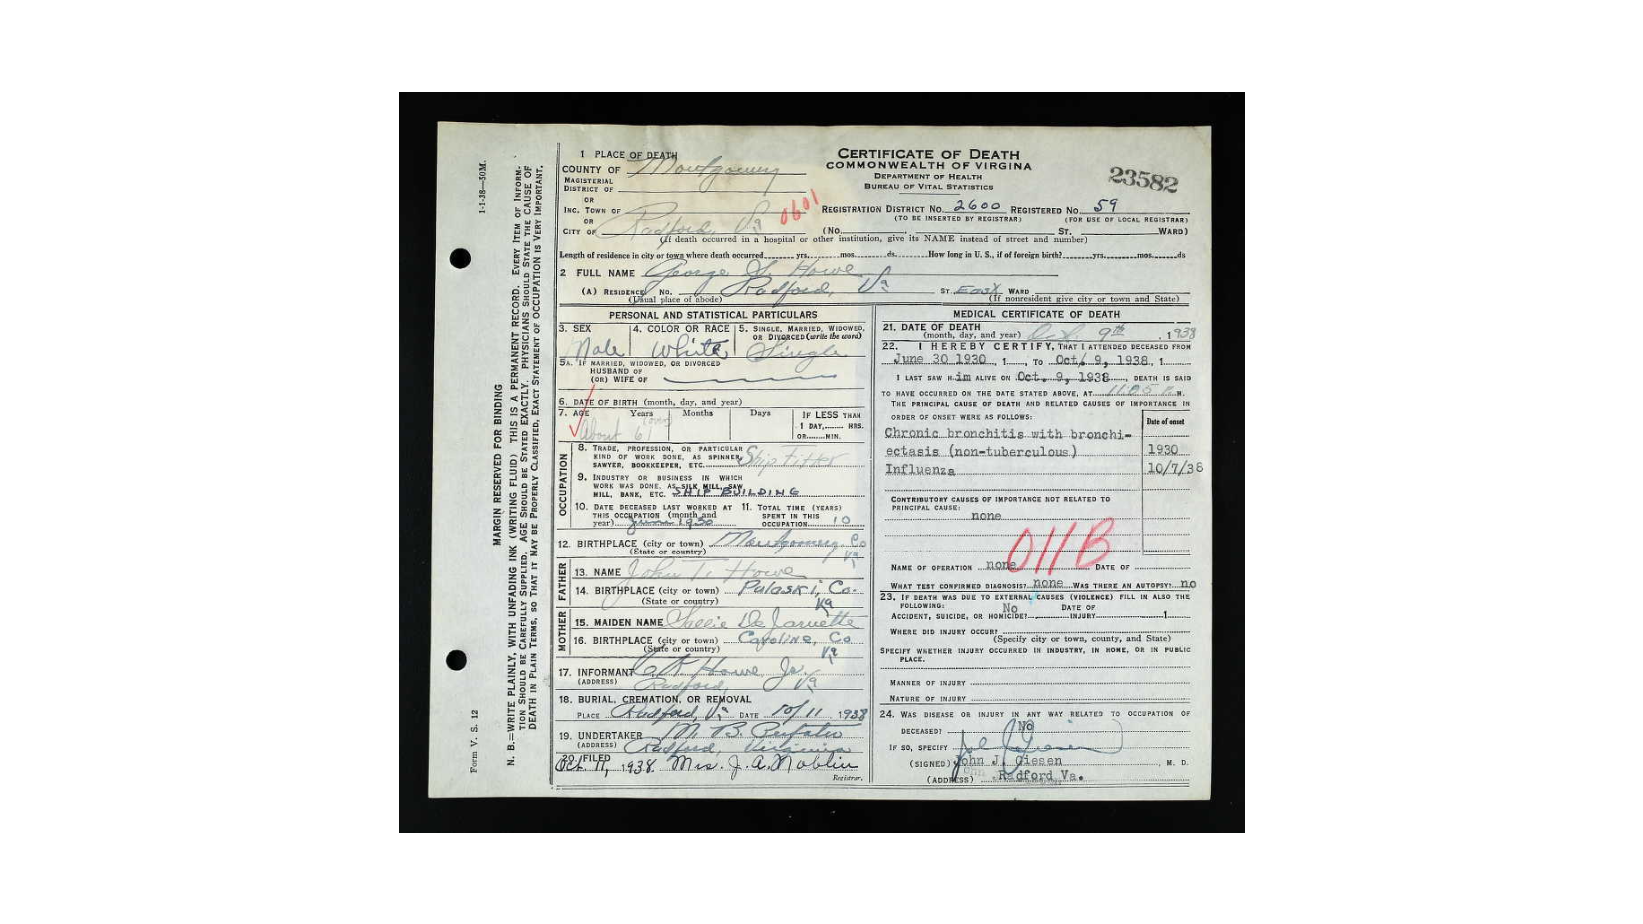 1 PLACE OF DEATH
COUNTY OF Montgomery
MAGISTERIAL
DISTRICT OF
OR
INC. TOWN OF
OR
CITY OF Radford, Va
0601
CERTIFICATE OF DEATH
COMMONWEALTH OF VIRGINIA
DEPARTMENT OF HEALTH
BUREAU OF VITAL STATISTICS
23582
REGISTRATION DISTRICT NO. 2600 REGISTERED NO. 59
(TO BE INSERTED BY REGISTRAR) (FOR USE OF LOCAL REGISTRAR)
(No. ST. WARD)
(If death occurred in a hospital or other institution, give its NAME instead of street and number)
Length of residence in city or town where death occurred yrs. mos. ds. How long in U. S., if of foreign birth? yrs. mos. ds
2 FULL NAME George Howe
(A) RESIDENCE NO. Radford, Va ST. East WARD
(Usual place of abode) (If nonresident give city or town and State)
PERSONAL AND STATISTICAL PARTICULARS
3. SEX 4. COLOR OR RACE 5. SINGLE, MARRIED, WIDOWED,
OR DIVORCED (write the word)
Male White Single
5A. IF MARRIED, WIDOWED, OR DIVORCED
HUSBAND OF
(OR) WIFE OF
6. DATE OF BIRTH (month, day, and year)
7. AGE Years Months Days IF LESS THAN
1 DAY, HRS.
OR MIN.
About 61
OCCUPATION
8. TRADE, PROFESSION, OR PARTICULAR
KIND OF WORK DONE, AS SPINNER,
SAWYER, BOOKKEEPER, ETC. Ship Fitter
9. INDUSTRY OR BUSINESS IN WHICH
WORK WAS DONE, AS SILK MILL, SAW
MILL, BANK, ETC. SHIP BUILDING
10. DATE DECEASED LAST WORKED AT 11. TOTAL TIME (YEARS)
THIS OCCUPATION (month and SPENT IN THIS
year) June 1930 OCCUPATION 10
12. BIRTHPLACE (city or town) Montgomery Co
(State or country) Va
FATHER
13. NAME John T. Howe
14. BIRTHPLACE (city or town) Pulaski, Co.
(State or country) Va
MOTHER
15. MAIDEN NAME Sallie DeJarnette
16. BIRTHPLACE (city or town) Caroline, Co
(State or country) Va
17. INFORMANT Howe Jr.
(ADDRESS) Radford, Va
18. BURIAL, CREMATION, OR REMOVAL
PLACE Radford, Va DATE 10/11 1938
19. UNDERTAKER M. B.
(ADDRESS) Radford, Virginia
20. FILED
Oct. 11, 1938. Mrs. J. A. Noblin
Registrar.
MEDICAL CERTIFICATE OF DEATH
21. DATE OF DEATH
(month, day, and year) Oct. 9th, 1938
22. I HEREBY CERTIFY, THAT I ATTENDED DECEASED FROM
June 30 1930, 1 , TO Oct. 9, 1938, 1
I LAST SAW H im ALIVE ON Oct. 9, 1938 , DEATH IS SAID
TO HAVE OCCURRED ON THE DATE STATED ABOVE, AT M.
THE PRINCIPAL CAUSE OF DEATH AND RELATED CAUSES OF IMPORTANCE IN
ORDER OF ONSET WERE AS FOLLOWS:
Date of onset
Chronic bronchitis with bronchi-
ectasis (non-tuberculous) 1930
Influenza 10/7/38
CONTRIBUTORY CAUSES OF IMPORTANCE NOT RELATED TO
PRINCIPAL CAUSE:
none
011B
NAME OF OPERATION none DATE OF
WHAT TEST CONFIRMED DIAGNOSIS? none WAS THERE AN AUTOPSY? no
23. IF DEATH WAS DUE TO EXTERNAL CAUSES (VIOLENCE) FILL IN ALSO THE
FOLLOWING: No DATE OF
ACCIDENT, SUICIDE, OR HOMICIDE? INJURY 1
WHERE DID INJURY OCCUR?
(Specify city or town, county, and State)
SPECIFY WHETHER INJURY OCCURRED IN INDUSTRY, IN HOME, OR IN PUBLIC
PLACE.
MANNER OF INJURY
NATURE OF INJURY
24. WAS DISEASE OR INJURY IN ANY WAY RELATED TO OCCUPATION OF
DECEASED? No
IF SO, SPECIFY
(SIGNED) John J. Giesen , M. D.
(ADDRESS) Radford Va.
1-1-38—50M.
MARGIN RESERVED FOR BINDING
N. B.—WRITE PLAINLY, WITH UNFADING INK (WRITING FLUID) THIS IS A PERMANENT RECORD. EVERY ITEM OF INFORM-
TION SHOULD BE CAREFULLY SUPPLIED. AGE SHOULD BE STATED EXACTLY. PHYSICIANS SHOULD STATE THE CAUSE OF
DEATH IN PLAIN TERMS, SO THAT IT MAY BE PROPERLY CLASSIFIED, EXACT STATEMENT OF OCCUPATION IS VERY IMPORTANT.
Form V. S. 12